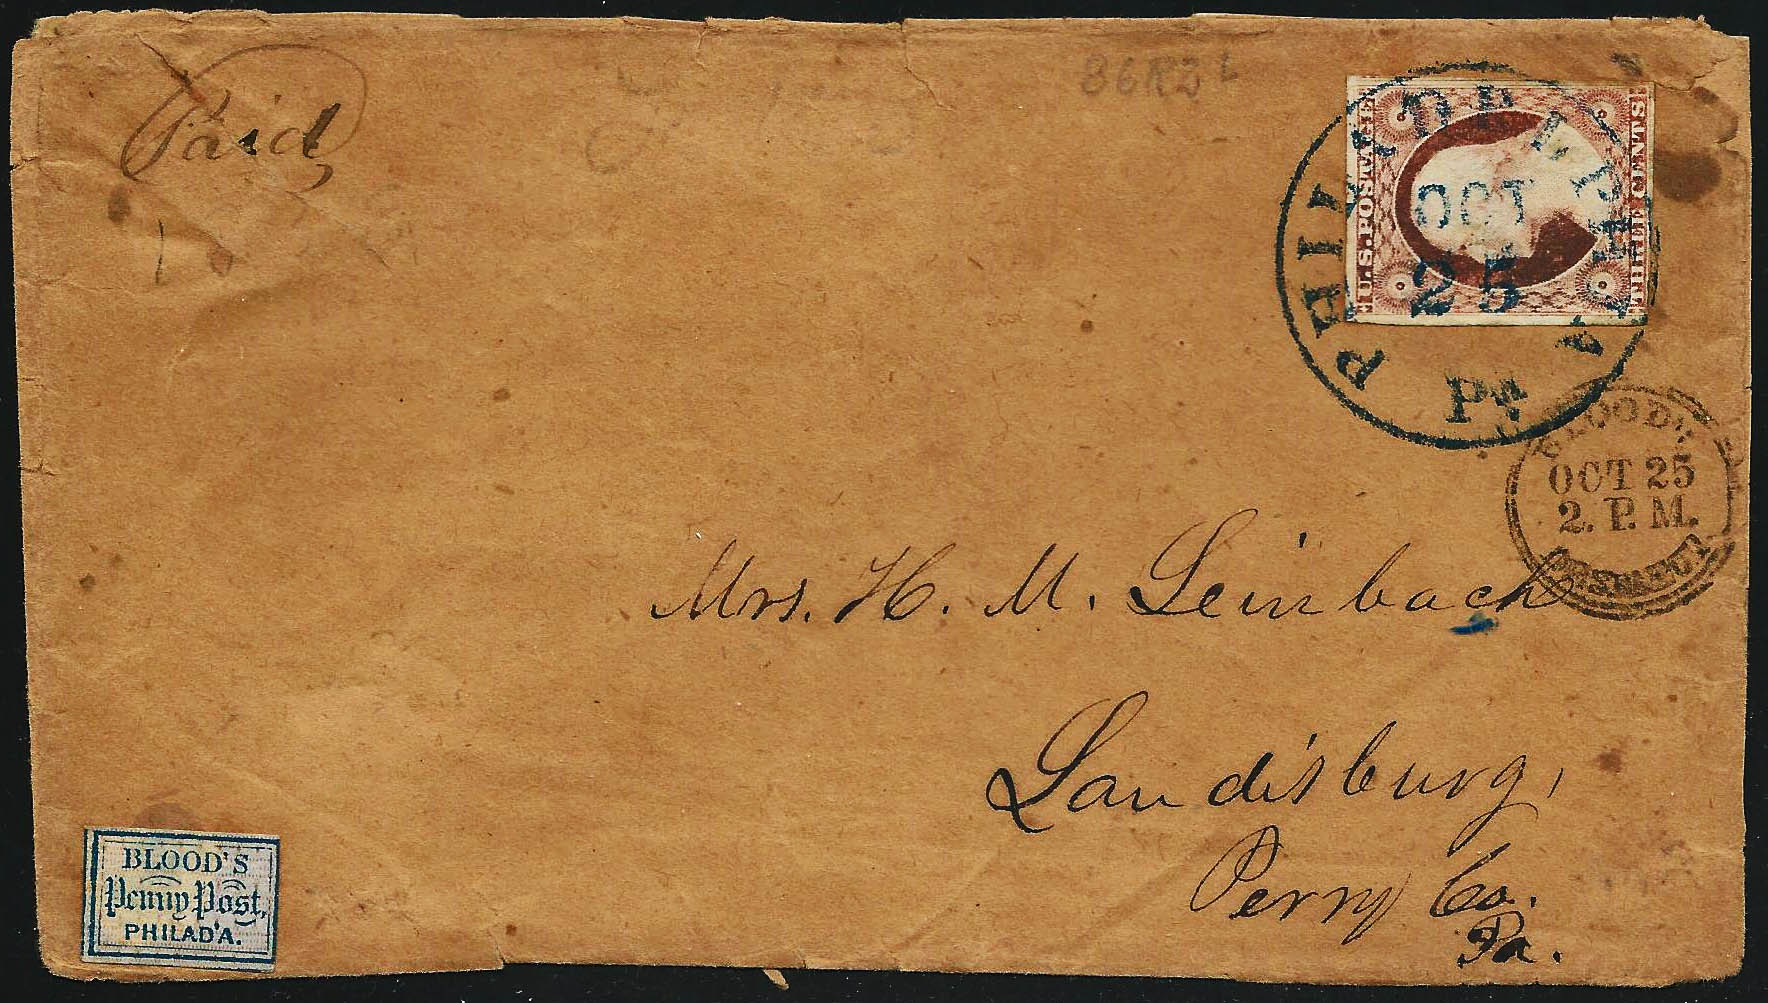 Paid
36R2L
U.S. POSTAGE
THREE CENTS
PHILADELPHIA
OCT
25
Pa.
BLOOD'S
OCT 25
2. P. M.
DESPATCH
Mrs. H. M. Leinbach
Landisburg,
Perry Co.
Pa.
BLOOD'S
Penny Post,
PHILAD'A.